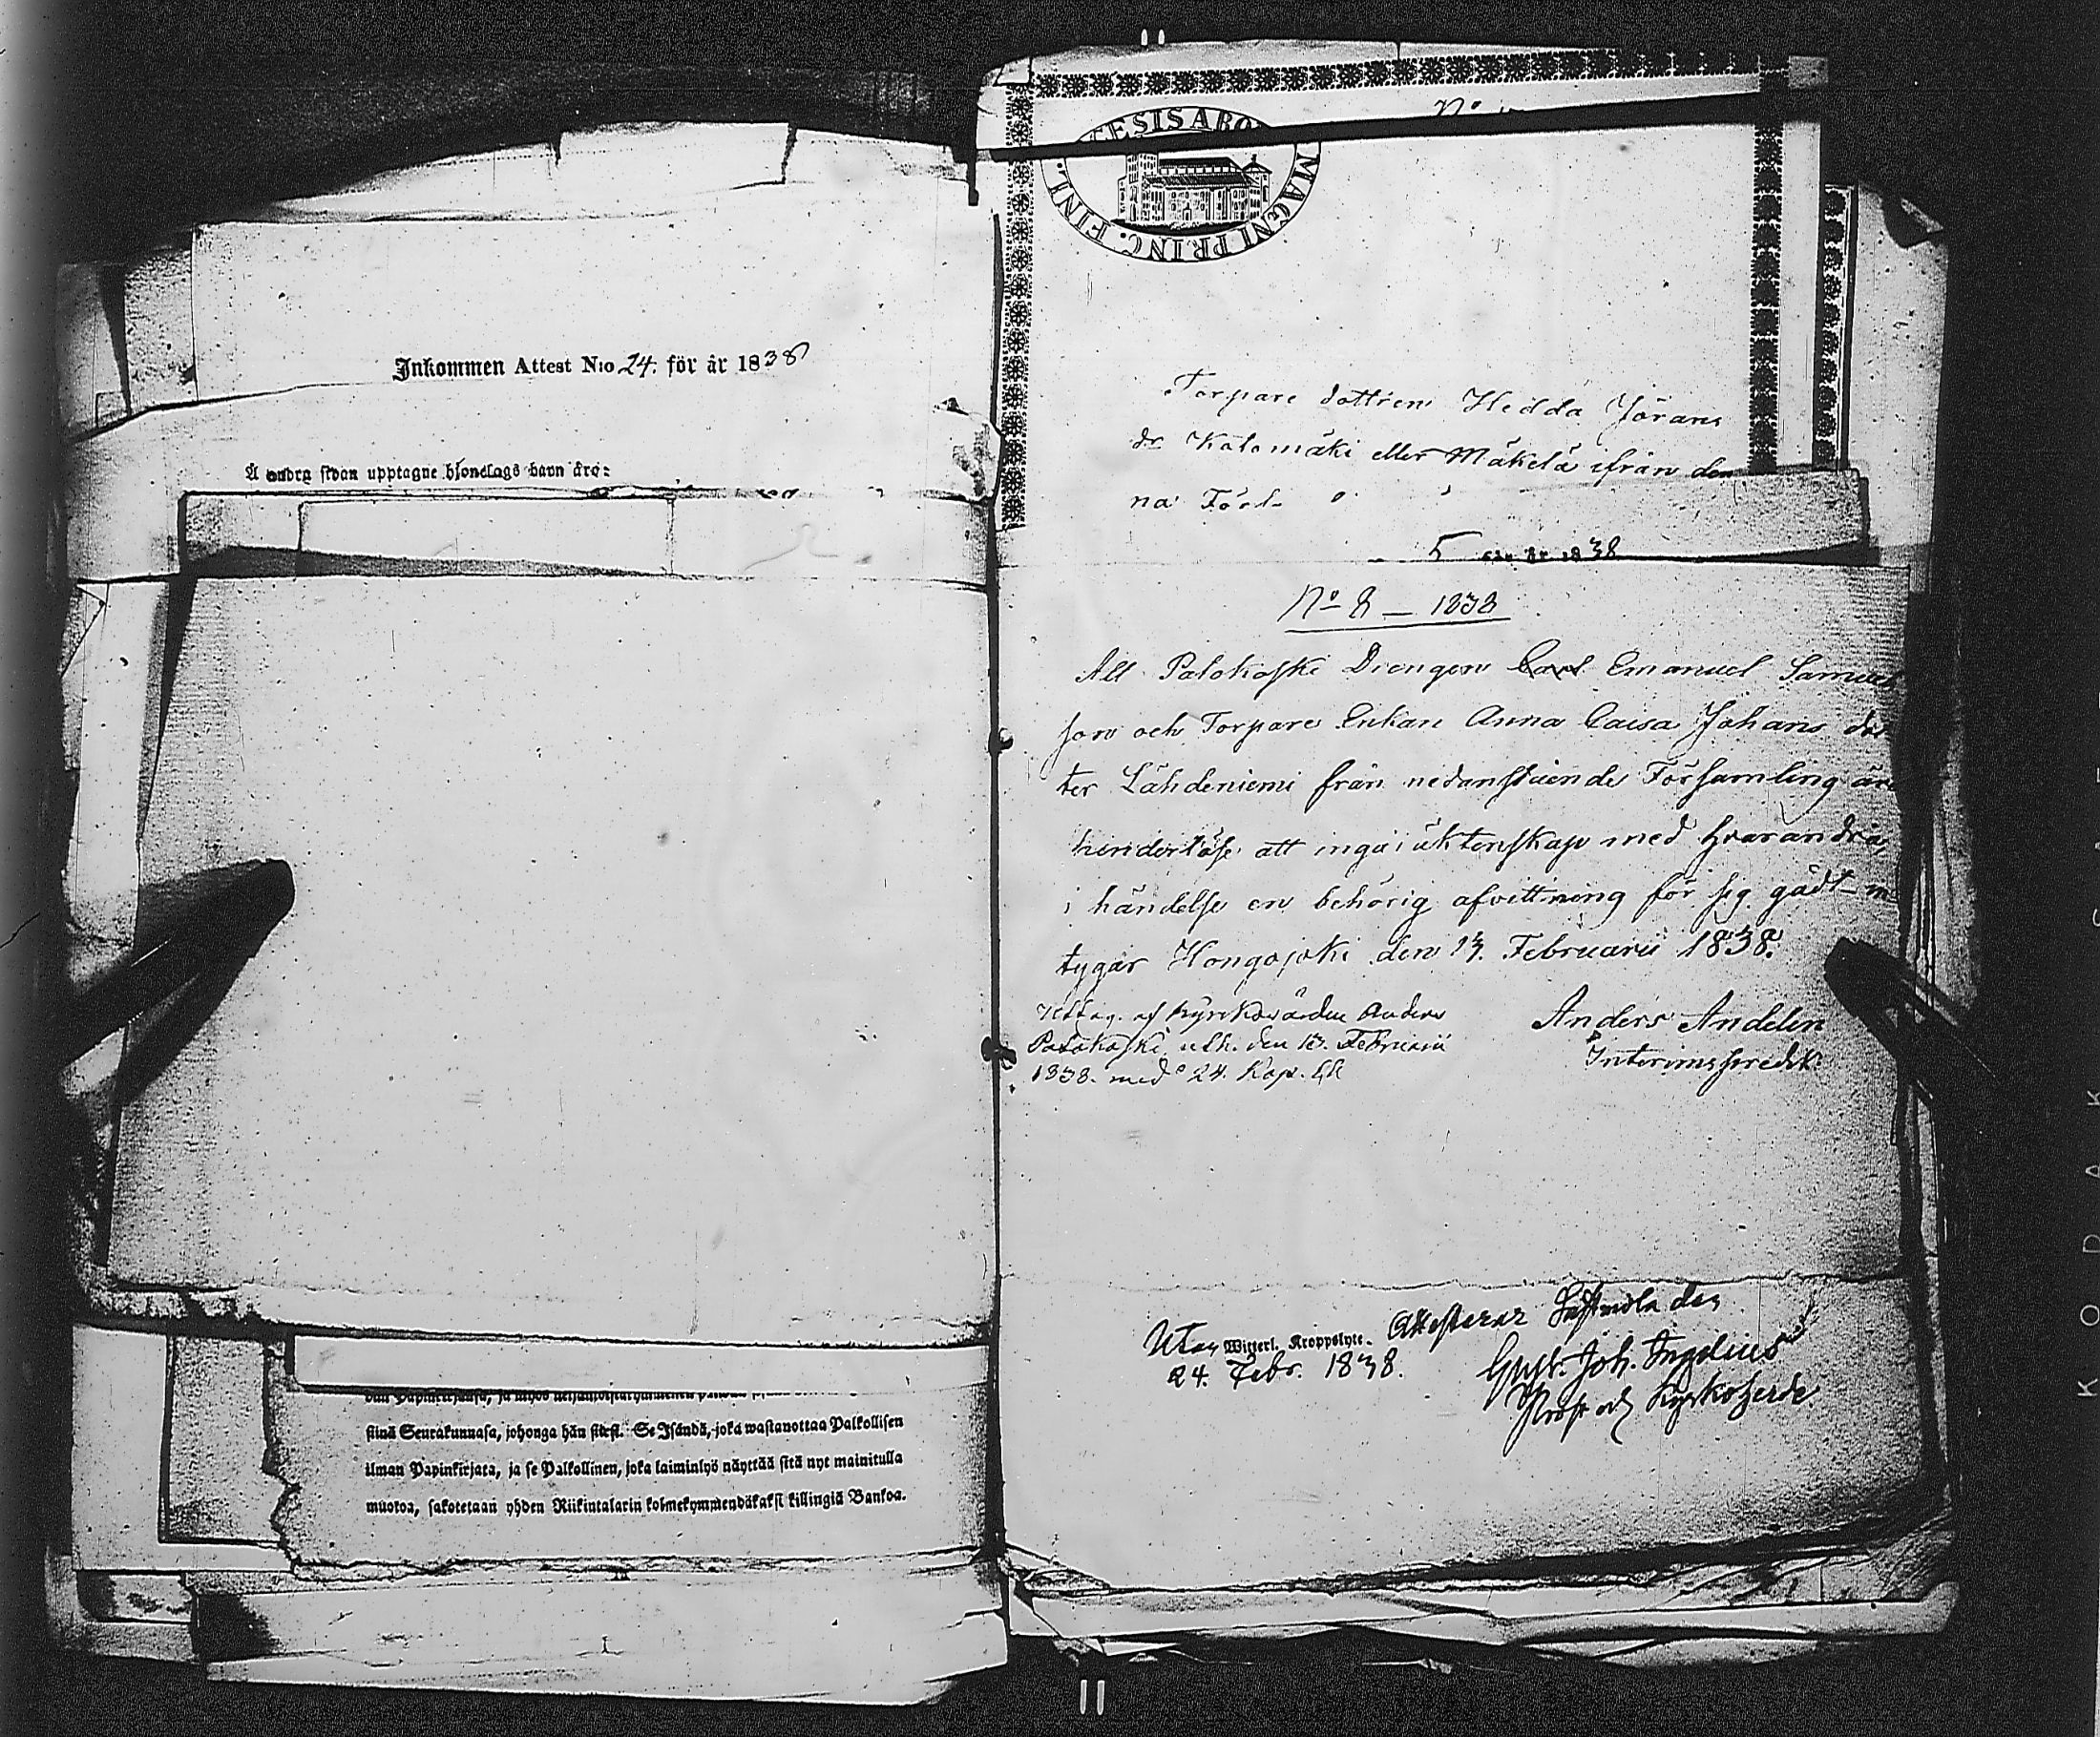 Inkommen Attest N:o 24. för år 1838
Å andra sidan upptagne hjonelags barn äro:
sinä Seurakunnasa, johonga hän siirsi. Se Isändä, joka wastanottaa Palkollisen
ilman Papinkirjata, ja se Palkollinen, joka laiminlyö näyttää sitä nyt mainitulla
muotoa, sakotetaan yhden Riikintalarin kolmekymmendäkaksi killingiä Bankoa.
N:o
MAGNI PRINC. FINL.
Torpare dottren Hedda Jörans
dr Katomäki eller Mäkelä ifrån den
na Förs
5 för år 1838
No 8 — 1838
Att Palokoski Drengen Carl Emanuel Samuel
son och Torpare Enkan Anna Caisa Johans dot
ter Lähdeniemi från nedanstående Församling äro
hinderlöse att ingå äktenskap med hvarandra,
i händelse en behörig afvittning för sig gådt
tygar Hongojoki den 13. Februarii 1838.
Anders Andelin
Interimspredik:
af Kyrkovärden Anders
Palokoski den 13. Februarii
1838. med 24. Kop.
Utan Witterl. Kroppslyte. Attesterar den
24. Febr. 1838.
Gust. Joh. Ingelius
Prost och Kyrkoherde
KODAK